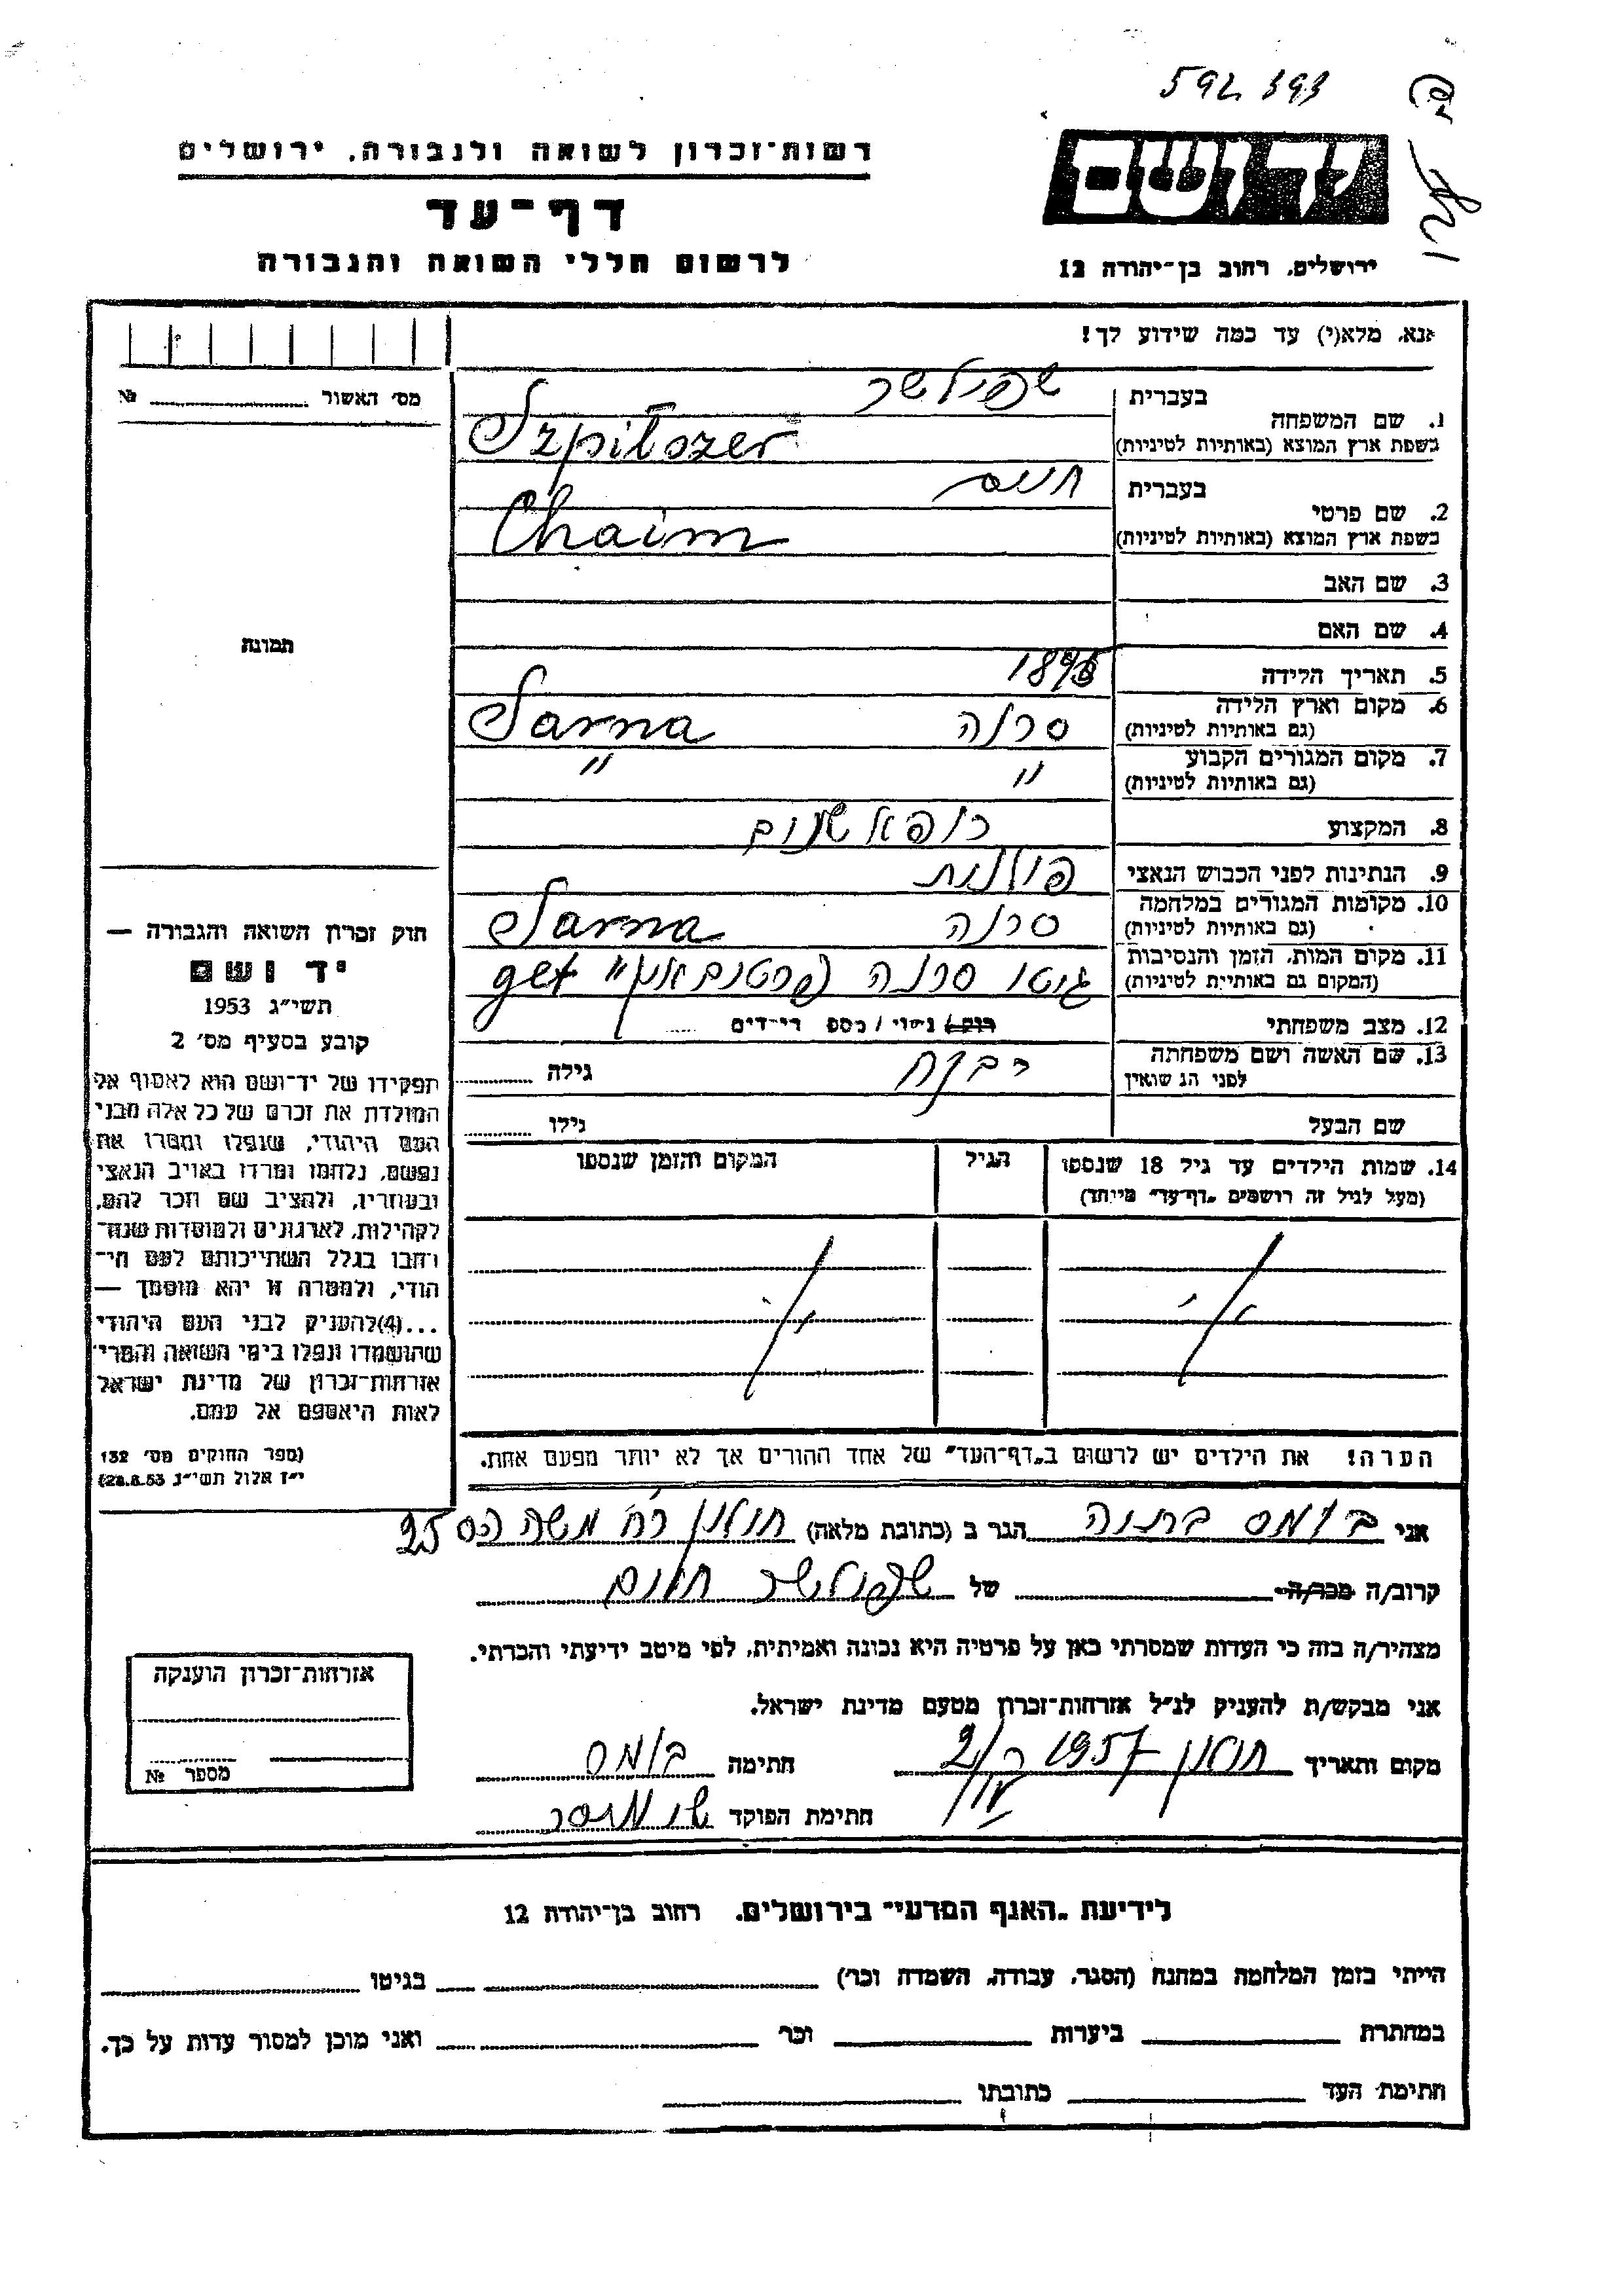 592 393
יד ושם
רשות־זכרון לשואה ולגבורה, ירושלים
דף־עד
לרשום חללי השואה והגבורה
ירושלים, רחוב בן־יהודה 12
אנא, מלא(י) עד כמה שידוע לך!
מס׳ האשור № 
תמונה
בעברית שפילשר
1. שם המשפחה
בשפת ארץ המוצא (באותיות לטיניות) Szpilszer
בעברית חיים
2. שם פרטי
בשפת ארץ המוצא (באותיות לטיניות) Chaim
3. שם האב
4. שם האם
5. תאריך הלידה
6. מקום וארץ הלידה סרנה Sarna
(גם באותיות לטיניות)
7. מקום המגורים הקבוע " "
(גם באותיות לטיניות)
8. המקצוע רופא שנים
9. הנתינות לפני הכבוש הנאצי פולנית
10. מקומות המגורים במלחמה סרנה Sarna
(גם באותיות לטיניות)
11. מקום המות, הזמן והנסיבות גיטו סרנה
(המקום גם באותיות לטיניות)
12. מצב משפחתי רוק / נשוי / מספר ילדים
13. שם האשה ושם משפחתה רבקה גילה
לפני הנשואין
שם הבעל גילו
14. שמות הילדים עד גיל 18 שנספו הגיל המקום והזמן שנספו
(מעל לגיל זה רושמים „דף־עד״ מיוחד)
הערה! את הילדים יש לרשום ב„דף־העד״ של אחד ההורים אך לא יותר מפעם אחת.
חוק זכרון השואה והגבורה —
יד ושם
תשי״ג 1953
קובע בסעיף מס׳ 2
תפקידו של יד־ושם הוא לאסוף אל
המולדת את זכרם של כל אלה מבני
העם היהודי, שנפלו ומסרו את
נפשם, נלחמו ומרדו באויב הנאצי
ובעוזריו, ולהציב שם וזכר להם,
לקהילות, לארגונים ולמוסדות שנח־
רבו בגלל השתייכותם לעם הי־
הודי, ולמטרה זו יהא מוסמך —
...(4) להעניק לבני העם היהודי
שהושמדו ונפלו בימי השואה והמרי
אזרחות־זכרון של מדינת ישראל
לאות היאספם אל עמם.
(ספר החוקים מס׳ 132
י״ז אלול תשי״ג 28.8.53)
אני בומס ברנה הגר ב (כתובת מלאה) חולון רח׳ משה הס 25
קרוב/ה מכר/ה של שפילשר חיים
מצהיר/ה בזה כי העדות שמסרתי כאן על פרטיה היא נכונה ואמיתית, לפי מיטב ידיעתי והכרתי.
אני מבקש/ת להעניק לנ״ל אזרחות־זכרון מטעם מדינת ישראל.
מקום ותאריך חולון 1957 חתימה בומס
חתימת הפוקד
אזרחות־זכרון הוענקה
מספר №
לידיעת „האגף המדעי״ בירושלים, רחוב בן־יהודה 12
הייתי בזמן המלחמה במחנה (הסגר, עבודה, השמדה וכו׳) בגיטו
במחתרת ביערות וכו׳ ואני מוכן למסור עדות על כך.
חתימת העד כתובתו